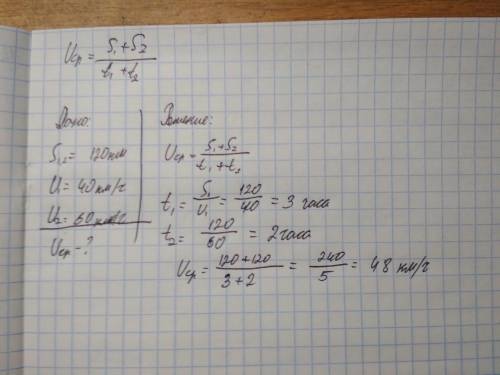 υср = S₁+S₂ / t₁+t₂
Дано:
S₁,₂ = 120км
υ₁ = 40км/ч
υ₂ = 60км/ч
υср - ?
Решение:
υср = S₁+S₂ / t₁+t₂
t₁ = S₁/υ₁ = 120/40 = 3 часа
t₂ = 120/60 = 2 часа
υср = 120+120 / 3+2 = 240/5 = 48 км/ч